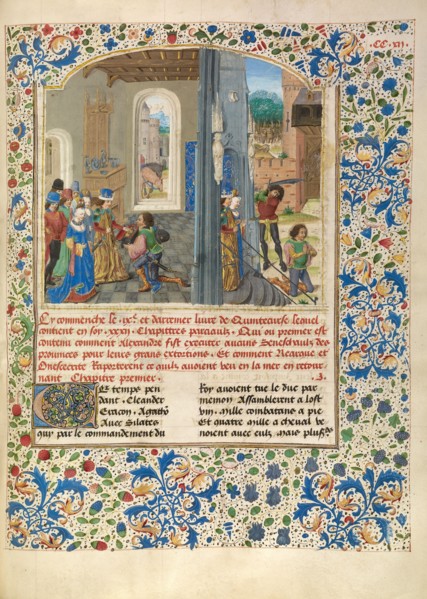 CC.XII.
Cy commenche le .ixe. et darrenier livre de Quintecurse lequel
contient en soy .xxxij. Chapittres parciaulz. Ou ou premier est
contenu comment Alexandre fist executer aucuns Seneschaulz des
provinces pour leurs grans extortions. Et comment Nearque et
Onesecrite Raporterent ce quilz avoient veu en la mer en retour
nant Chapitre premier. .j.
E temps pen
dant. Cleander
Et Agatho
Avec Sitates
qui par le commandement du
Roy avoient tue le duc par
menion Assamblerent a lost
mille combatans a pie
Et quatre mille a cheval ve
noient avec eulz, mais